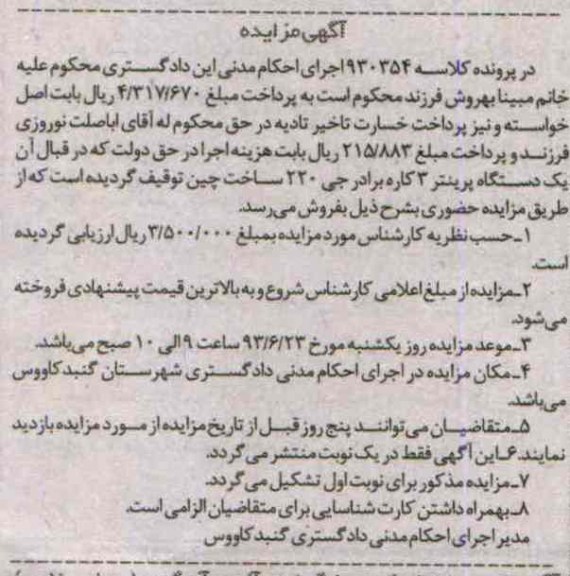 آگهی مزایده
در پرونده کلاسه ۹۳۰۳۵۴ اجرای احکام مدنی این دادگستری محکوم علیه
خانم مبینا بهروش فرزند محکوم است به پرداخت مبلغ ۴/۳۱۷/۶۷۰ ریال بابت اصل
خواسته و نیز پرداخت خسارت تاخیر تادیه در حق محکوم له آقای اباصلت نوروزی
فرزند و پرداخت مبلغ ۲۱۵/۸۸۳ ریال بابت هزینه اجرا در حق دولت که در قبال آن
یک دستگاه پرینتر ۳ کاره برادر جی ۲۲۰ ساخت چین توقیف گردیده است که از
طریق مزایده حضوری بشرح ذیل بفروش می‌رسد.
۱ـ حسب نظریه کارشناس مورد مزایده بمبلغ ۳/۵۰۰/۰۰۰ ریال ارزیابی گردیده
است.
۲ـ مزایده از مبلغ اعلامی کارشناس شروع و به بالاترین قیمت پیشنهادی فروخته
می‌شود.
۳ـ موعد مزایده روز یکشنبه مورخ ۹۳/۶/۲۳ ساعت ۹ الی ۱۰ صبح می‌باشد.
۴ـ مکان مزایده در اجرای احکام مدنی دادگستری شهرستان گنبدکاووس
می‌باشد.
۵ـ متقاضیان می‌توانند پنج روز قبل از تاریخ مزایده از مورد مزایده بازدید
نمایند. ۶ـ این آگهی فقط در یک نوبت منتشر می گردد.
۷ـ مزایده مذکور برای نوبت اول تشکیل می گردد.
۸ـ بهمراه داشتن کارت شناسایی برای متقاضیان الزامی است.
مدیر اجرای احکام مدنی دادگستری گنبدکاووس